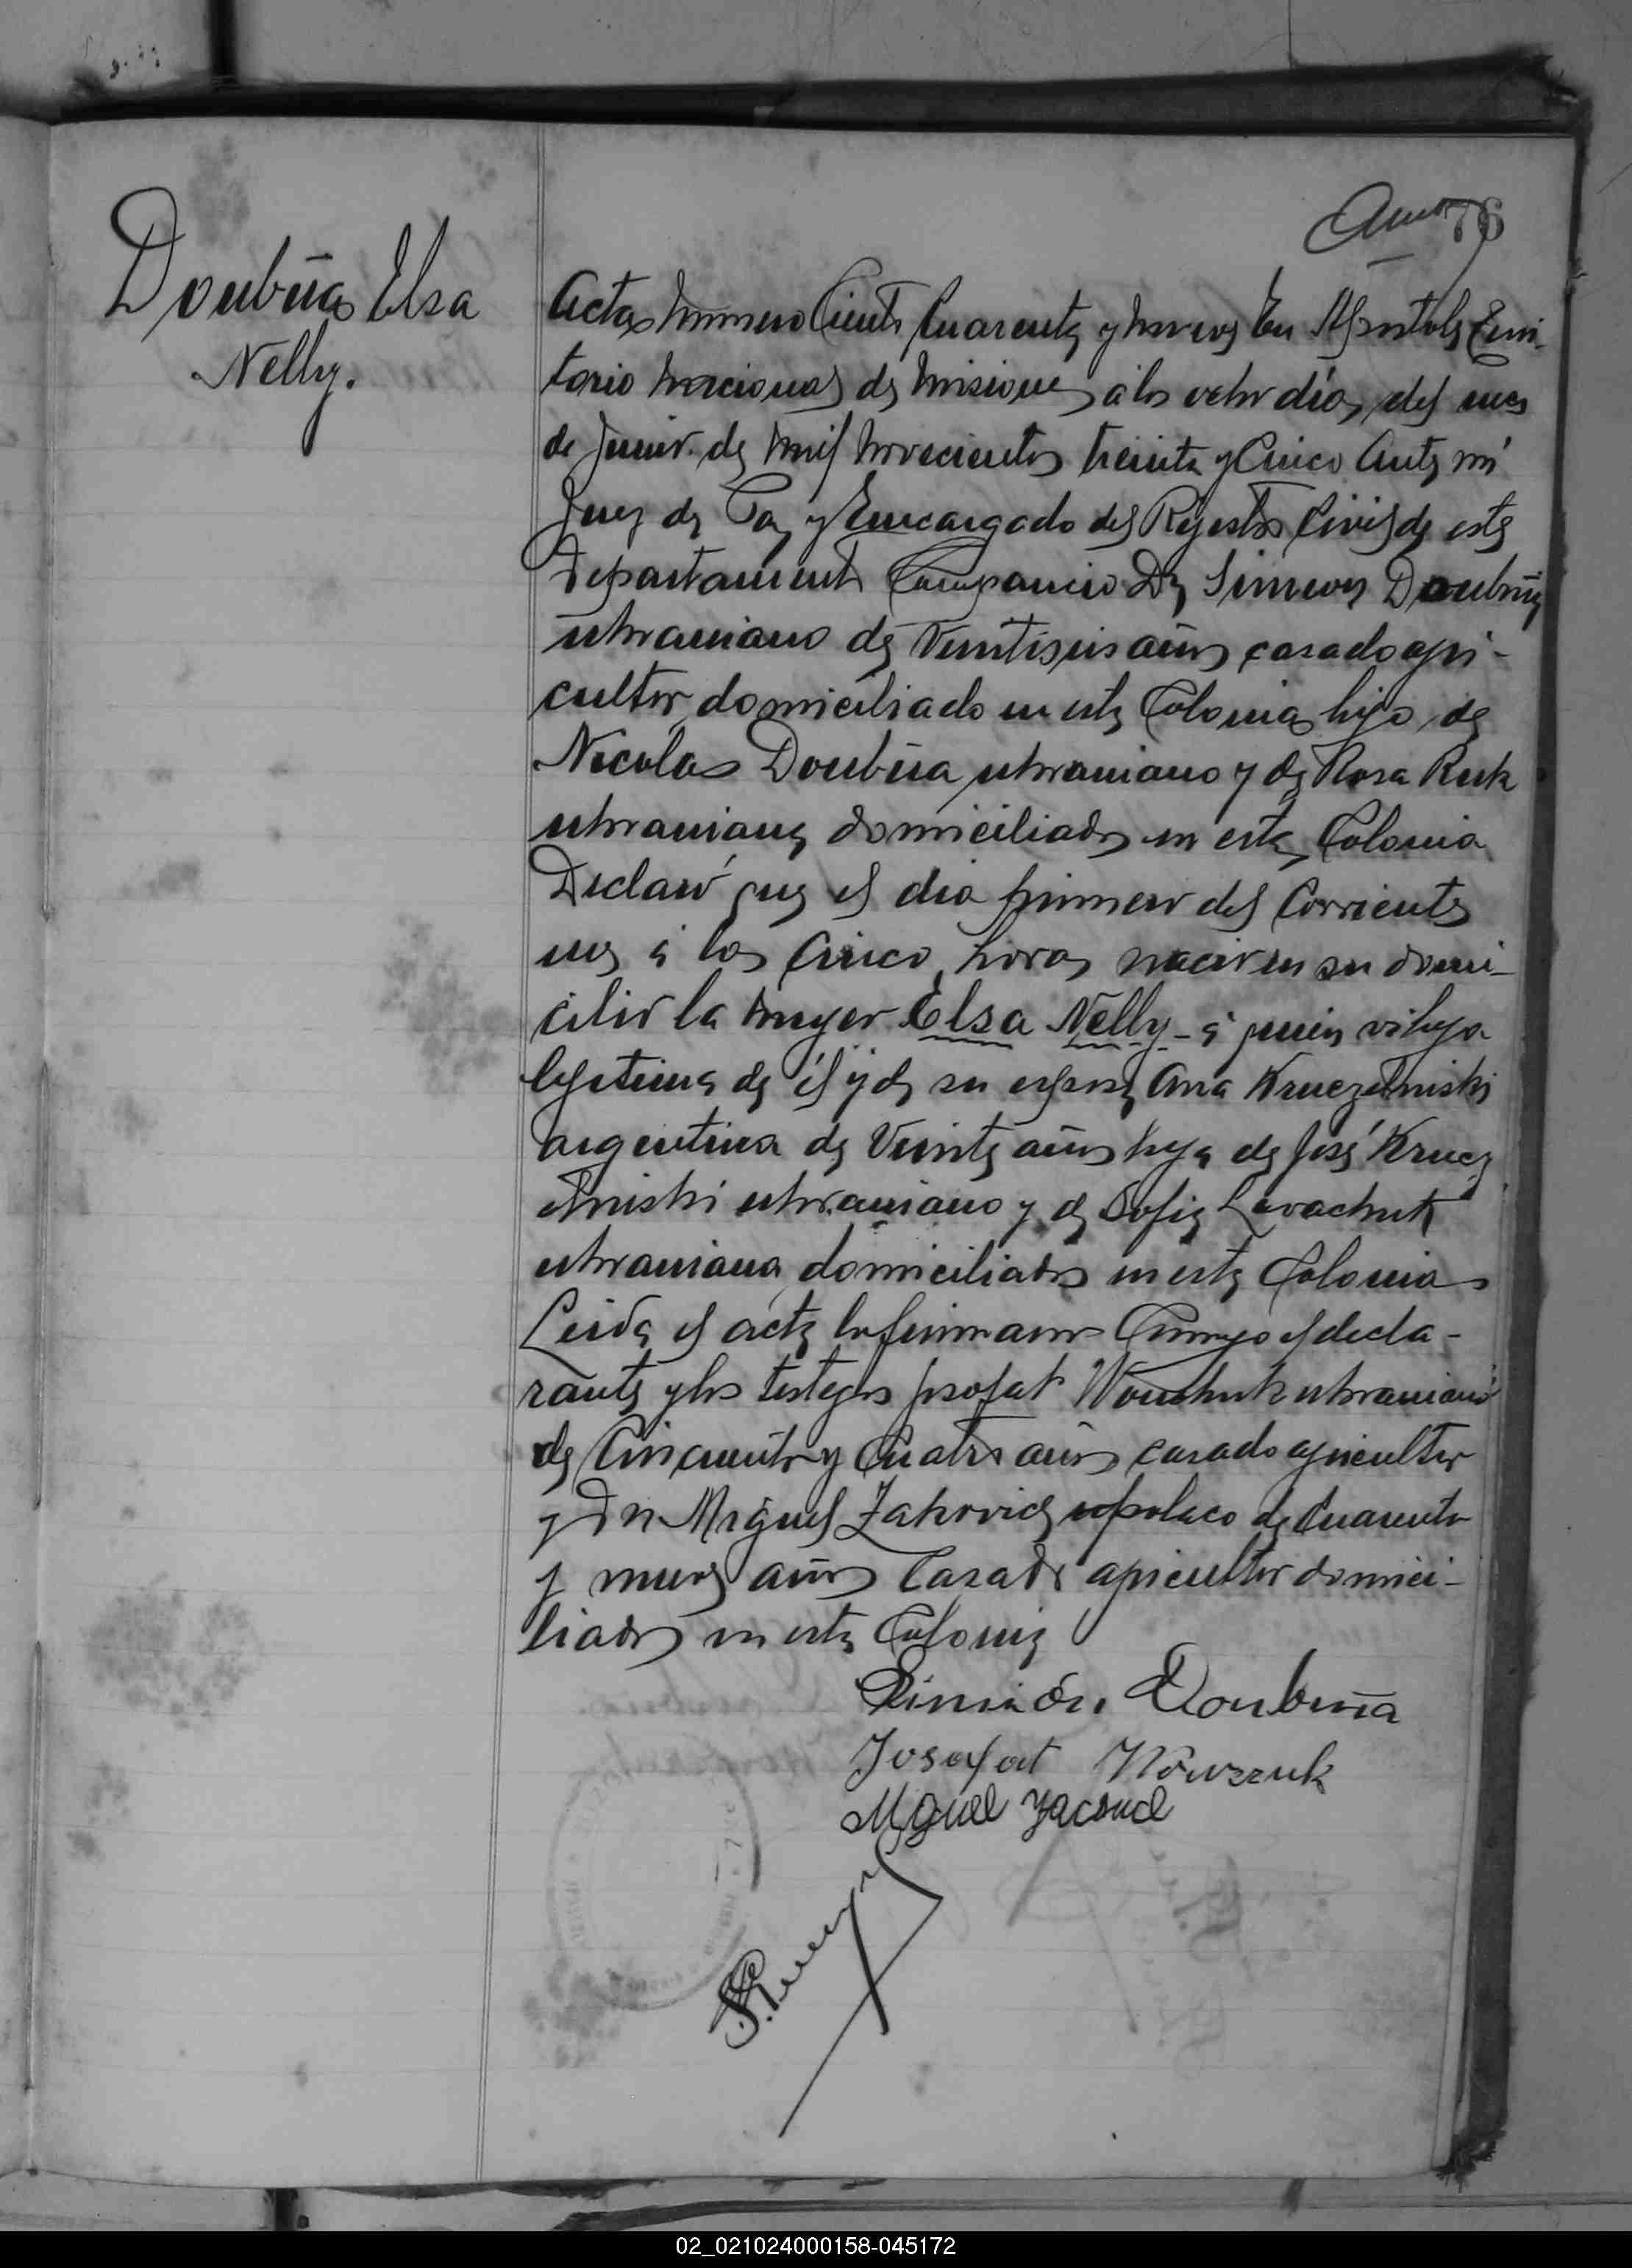 76
Doubña Elsa
Nelly.
Acta número Ciento Cuarenta y nueve En Apóstoles Terri-
torio Nacional de Misiones á los ocho días del mes
de Junio de mil novecientos treinta y Cinco Ante mí
Juez de Paz y Encargado del Rejistro Civil de este
Departamento Compareció Dn Simeon Doubña
ukraniano de Veintiseis años casado agri-
cultor domiciliado en esta Colonia hijo de
Nicolas Doubña ukraniano y de Rosa Ruk
ukraniana domiciliados en esta Colonia
Declaró que el dia primero del Corriente
mes á las Cinco horas nació en su domi-
cilio la muger Elsa Nelly - á quien vi hija
lejitima de él y de su esposa Ana Kruczelniski
argentina de Veinte años hija de José Krucz
elniski ukraniano y de Sofia Lavachuk
ukraniana domiciliados en esta Colonia
Leida el acta la firmaron Conmigo el decla-
rante y los testigos Josafat Wouchuk ukraniano
de Cincuenta y Cuatro años casado agricultor
y Dn Miguel Zakovicz polaco de Cuarenta
y nueve años Casado agricultor domici-
liados en esta Colonia
Simión Doubuia
Josafat Wowczuk
Miguel
02_021024000158-045172